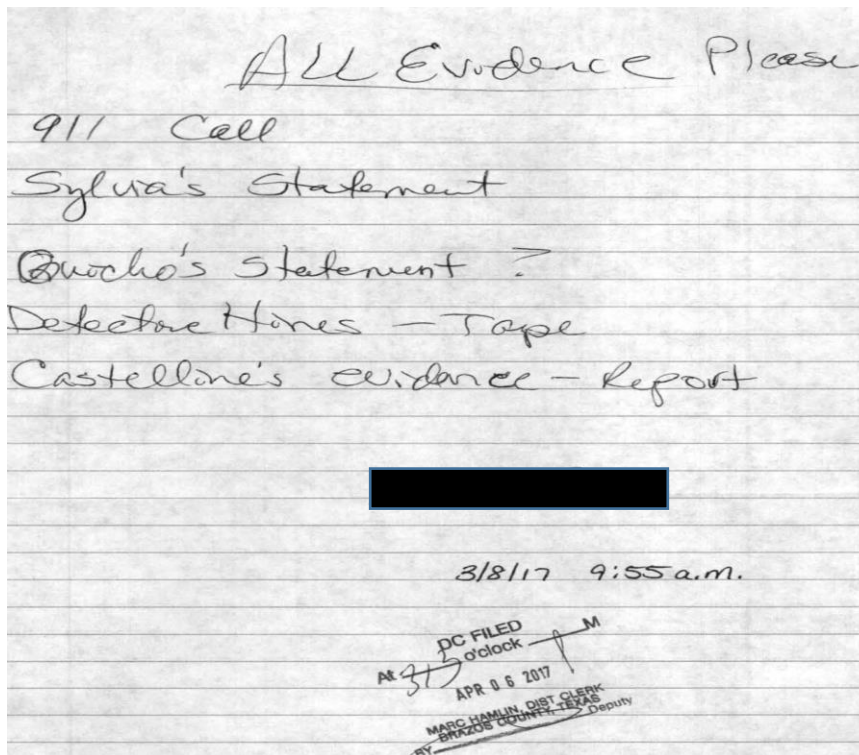 ALL Evidence Please
911 Call
Sylvia's Statement
Quocho's Statement ?
Detective Hines - Tape
Castelline's evidence - Report
3/8/17 9:55 a.m.
DC FILED
At 315 o'clock P M
APR 06 2017
MARC HAMLIN, DIST CLERK
BRAZOS COUNTY, TEXAS
BY Deputy